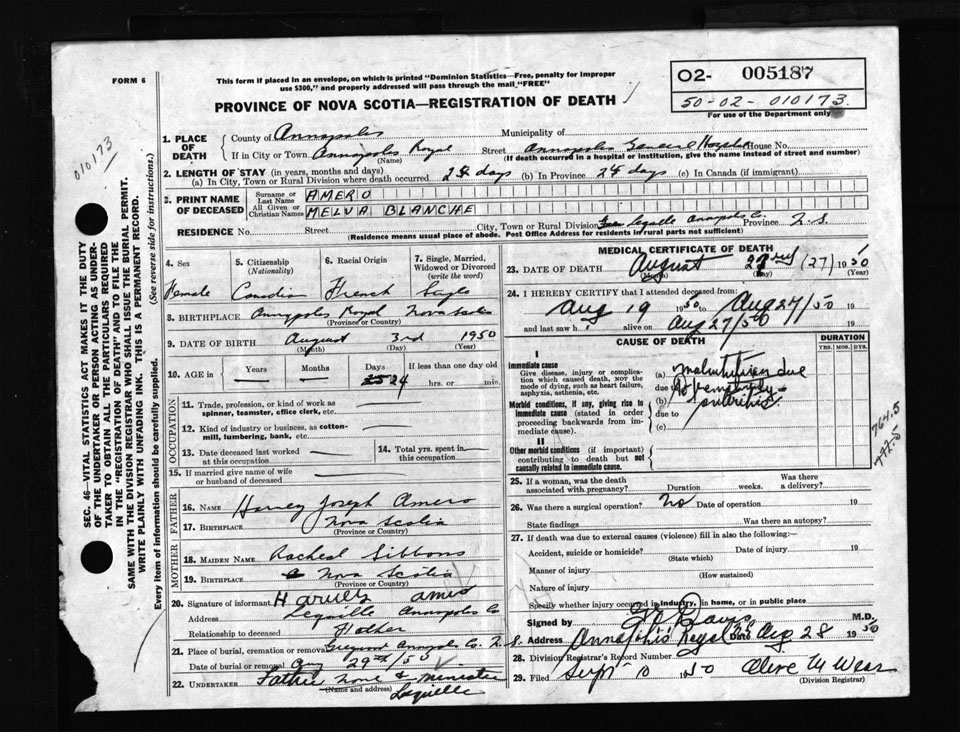 FORM 6
This form if placed in an envelope, on which is printed "Dominion Statistics—Free, penalty for improper
use $300," and properly addressed will pass through the mail "FREE"
PROVINCE OF NOVA SCOTIA—REGISTRATION OF DEATH
02- 005187
50-02-010173
For use of the Department only
010173
SEC. 46—VITAL STATISTICS ACT MAKES IT THE DUTY
OF THE UNDERTAKER OR PERSON ACTING AS UNDER-
TAKER TO OBTAIN ALL THE PARTICULARS REQUIRED
IN THE "REGISTRATION OF DEATH" AND TO FILE THE
SAME WITH THE DIVISION REGISTRAR WHO SHALL ISSUE THE BURIAL PERMIT.
WRITE PLAINLY WITH UNFADING INK. THIS IS A PERMANENT RECORD.
Every item of information should be carefully supplied. (See reverse side for instructions.)
1. PLACE OF DEATH County of Annapolis Municipality of
If in City or Town Annapolis Royal (Name) Street Annapolis General Hospital House No.
(If death occurred in a hospital or institution, give the name instead of street and number)
2. LENGTH OF STAY (in years, months and days)
(a) In City, Town or Rural Division where death occurred 24 days (b) In Province 24 days (c) In Canada (if immigrant)
3. PRINT NAME OF DECEASED
Surname or Last Name AMERO
All Given or Christian Names MELVA BLANCHE
RESIDENCE No. Street City, Town or Rural Division Lequille Annapolis Co. Province N.S.
(Residence means usual place of abode. Post Office Address for residents in rural parts not sufficient)
4. Sex 5. Citizenship (Nationality) 6. Racial Origin 7. Single, Married, Widowed or Divorced (write the word)
Female Canadian French Single
8. BIRTHPLACE Annapolis Royal Nova Scotia
(Province or Country)
9. DATE OF BIRTH August 3rd 1950
(Month) (Day) (Year)
10. AGE in Years Months Days 24 If less than one day old hrs. or min.
OCCUPATION
11. Trade, profession, or kind of work as
spinner, teamster, office clerk, etc.
12. Kind of industry or business, as cotton-
mill, lumbering, bank, etc.
13. Date deceased last worked at this occupation 14. Total yrs. spent in this occupation
15. If married give name of wife
or husband of deceased
FATHER
16. NAME Harvey Joseph Amero
17. BIRTHPLACE Nova Scotia
(Province or Country)
MOTHER
18. MAIDEN NAME Racheal Gibbons
19. BIRTHPLACE Nova Scotia
(Province or Country)
20. Signature of informant Harvey
Address Lequille Annapolis Co
Relationship to deceased Father
21. Place of burial, cremation or removal Annapolis Co. N.S.
Date of burial or removal Aug 29th/50
22. UNDERTAKER Father None & Minister
(Name and address) Lequille
MEDICAL CERTIFICATE OF DEATH
23. DATE OF DEATH August (27) 1950
(Month) (Day) (Year)
24. I HEREBY CERTIFY that I attended deceased from:
Aug 19 1950 to Aug 27/50 19
and last saw h alive on Aug 27/50 19
CAUSE OF DEATH DURATION
YRS. MOS. DYS.
I
Immediate cause
Give disease, injury or complica-
tion which caused death, not the
mode of dying, such as heart failure,
asphyxia, asthenia, etc.
(a) Malnutrition due
due to
(b)
due to
(c)
Morbid conditions, if any, giving rise to
immediate cause (stated in order
proceeding backwards from im-
mediate cause).
II
Other morbid conditions (if important)
contributing to death but not
causally related to immediate cause.
764.5
772.5
25. If a woman, was the death
associated with pregnancy? Duration weeks. Was there a delivery?
26. Was there a surgical operation? No Date of operation 19
State findings Was there an autopsy?
27. If death was due to external causes (violence) fill in also the following:—
Accident, suicide or homicide? (State which) Date of injury 19
Manner of injury (How sustained)
Nature of injury
Specify whether injury occurred in industry, in home, or in public place
Signed by M.D.
Address Annapolis Royal Date Aug 28 1950
28. Division Registrar's Record Number
29. Filed Sept 10 1950 Olive M Wear
(Division Registrar)